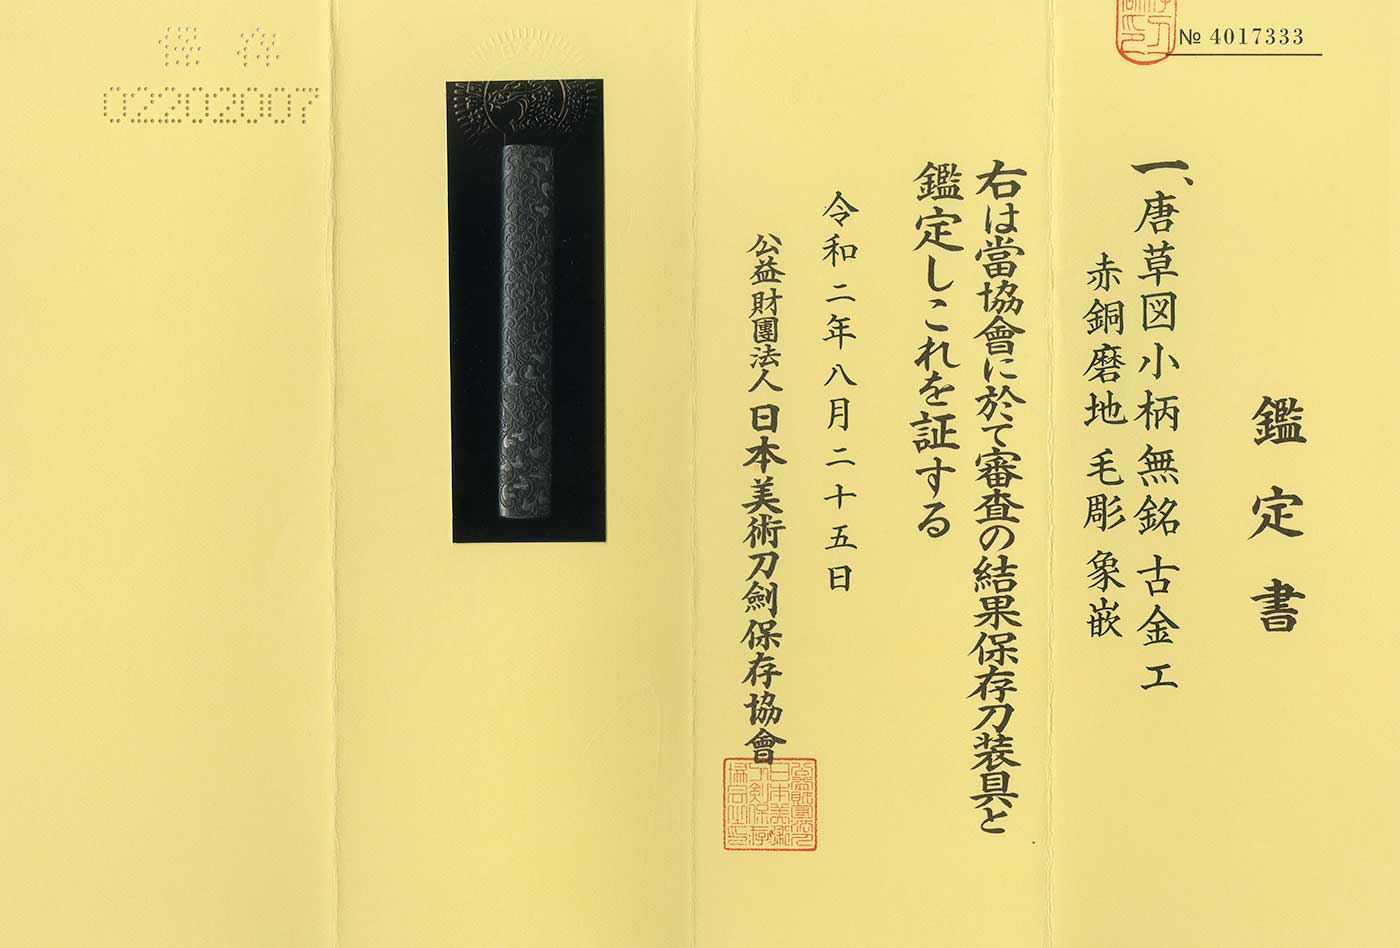 № 4017333
鑑定書
一、唐草図小柄 無銘 古金工
赤銅磨地 毛彫 象嵌
右は當協會に於て審査の結果保存刀装具と
鑑定しこれを証する
令和二年八月二十五日
公益財團法人 日本美術刀劍保存協會
保存
02202007